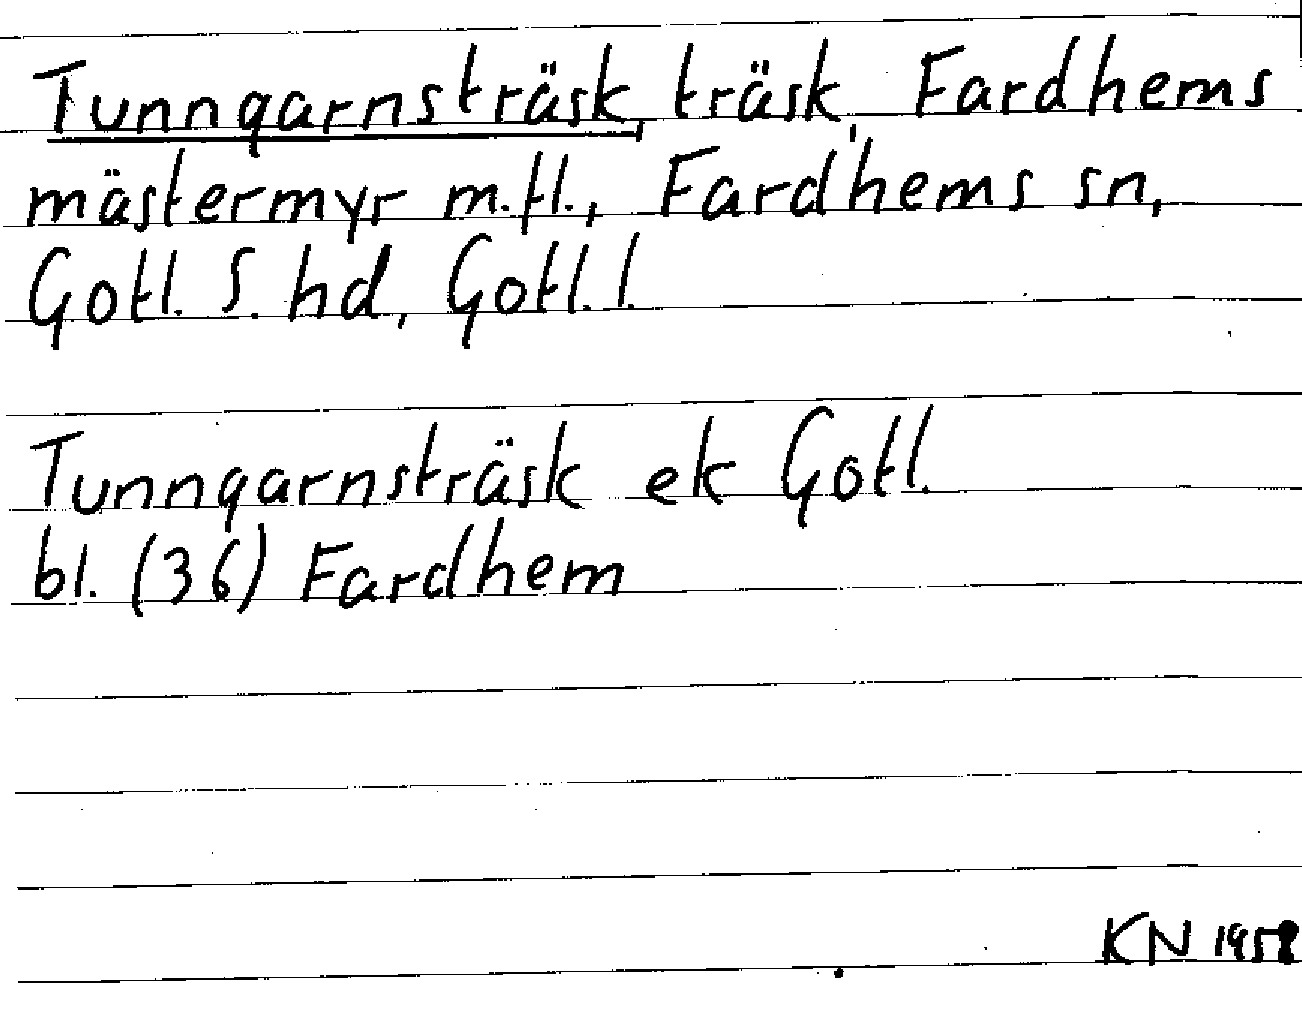 Tunngarnsträsk, träsk, Fardhems
mästermyr m.fl., Fardhems sn,
Gotl. S. hd, Gotl. l.
Tunngarnsträsk ek Gotl.
bl. (36) Fardhem
KN 1958